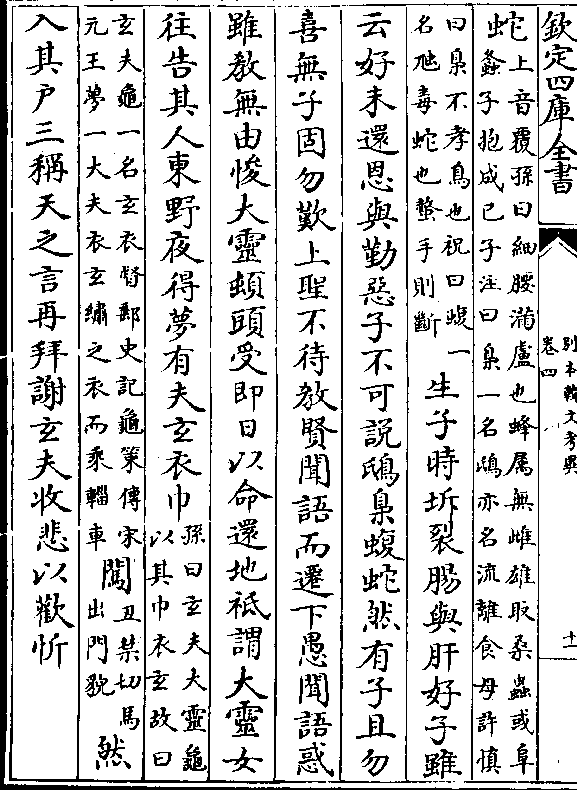 欽定四庫全書
別本韓文考異
卷四
十一
蛇上音覆孫曰細腰蒲盧也蜂屬無雌雄取桑蟲或阜
螽子抱成己子注曰梟一名鴟亦名流離食母許慎
曰梟不孝鳥也祝曰蝮一
名虺毒蛇也螫手則斷
生子時坼裂腸與肝好子雖
云好未還恩與勤惡子不可說鴟梟蝮蛇然有子且勿
喜無子固勿歎上聖不待教賢聞語而遷下愚聞語惑
雖教無由悛大靈頓頭受即日以命還地祇謂大靈女
往告其人東野夜得夢有夫玄衣巾
孫曰玄夫大靈龜
以其巾衣玄故曰
玄夫龜一名玄衣督郵史記龜策傳宋
元王夢一大夫衣玄繡之衣而乘輜車
闖
丑禁切馬
出門貌
然
入其戶三稱天之言再拜謝玄夫收悲以歡忻